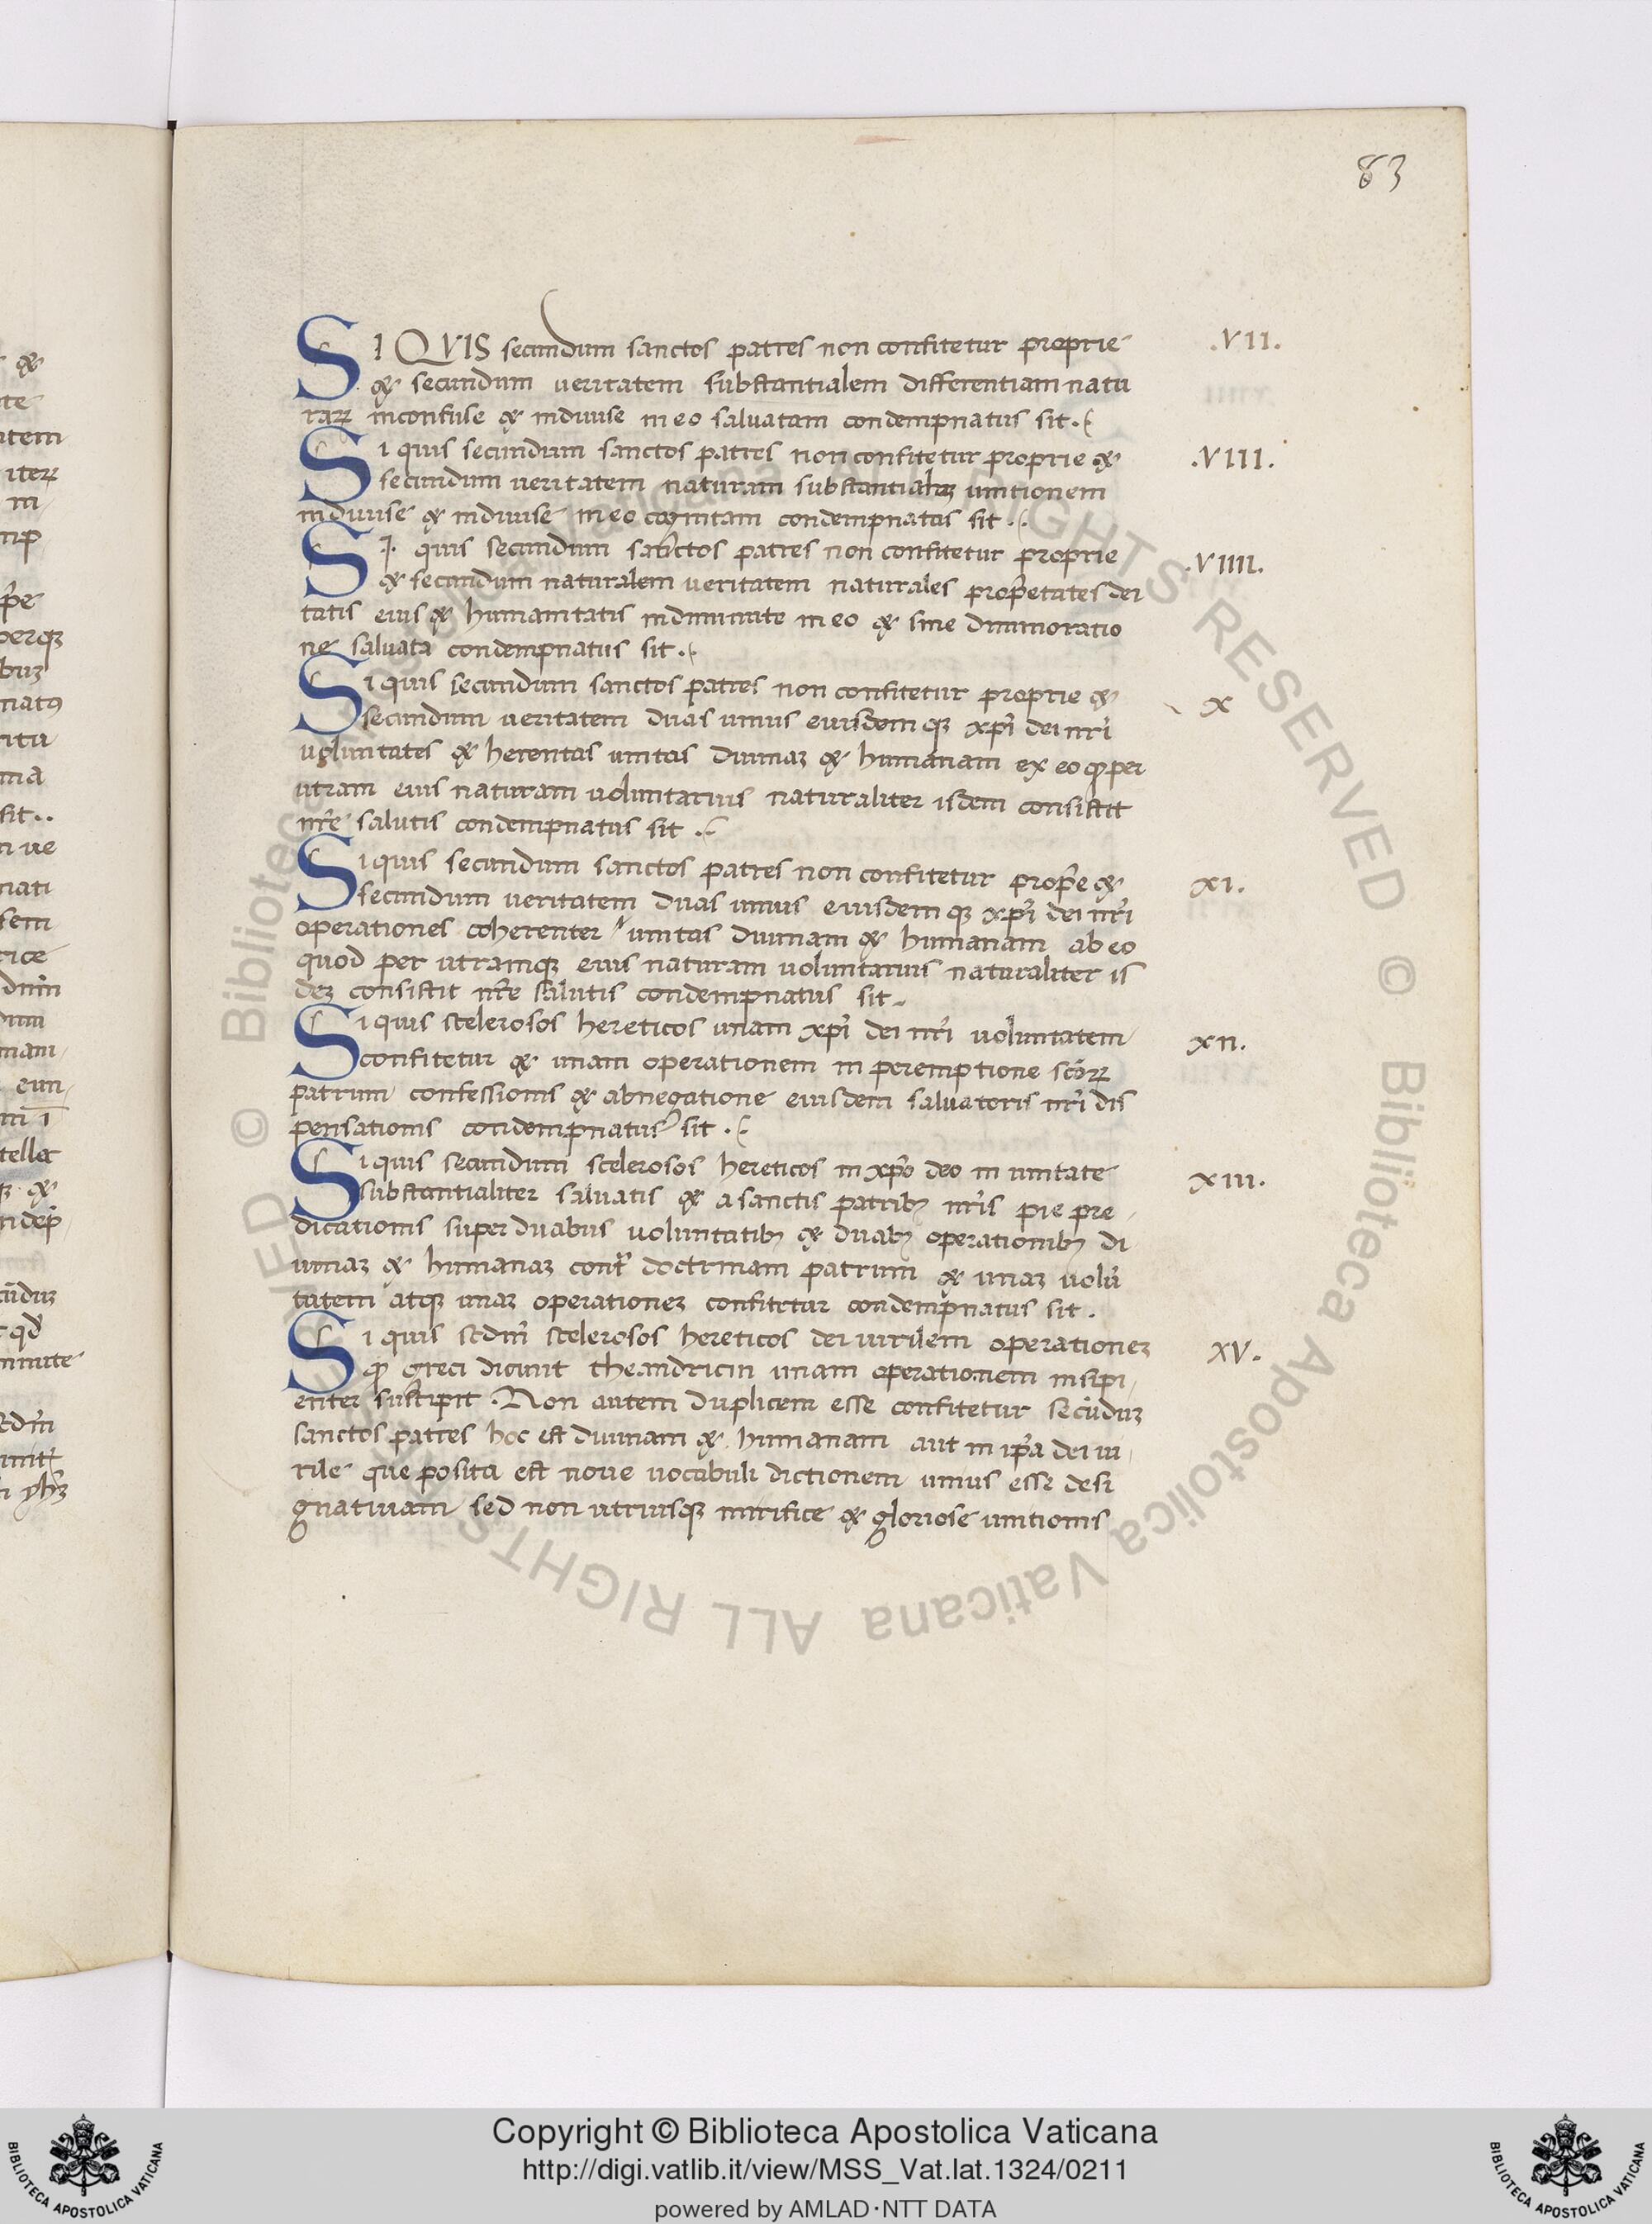 83
SI QVIS secundum sanctos patres non confitetur proprie .VII.
& secundum ueritatem substantialem differentiam natu
raꝝ inconfuse & indiuise in eo saluatam condempnatus sit.
Si quis secundum sanctos patres non confitetur proprie & .VIII.
secundum ueritatem naturam unitionem
indiuise & indiuise in eo condempnatus sit.
S.I. quis secundum sanctos patres non confitetur proprie .VIIII.
& secundum naturalem ueritatem naturales prop̃etates dei
tatis eius & humanitatis indiminute in eo & sine diuimoratio
ne saluata condempnatus sit.
Si quis secundum sanctos patres non confitetur proprie & X
secundum ueritatem duas unius eiusdemqꝫ xp̃i dei nr̃i
uoluntates & herentas unitas diuinaꝫ & humanam ex eo ꝙ per
utram eius naturam uoluntarius naturaliter isdem consistit
nr̃e salutis condempnatus sit.
Si quis secundum sanctos patres non confitetur prop̃e & XI.
secundum ueritatem duas unius eiusdemqꝫ xp̃i dei nr̃i
operationes coherenter unitas diuinam & humanam ab eo
quod per utramqꝫ eius naturam uoluntarius naturaliter is
deꝫ consistit nr̃e salutis condempnatus sit.
Si quis scelerosos hereticos unam xp̃i dei nr̃i uoluntatem XII.
confitetur & unam operationem in peremptione sc̃oꝝ
patrum confessionis & abnegatione eiusdem saluatoris nr̃i dis
pensationis condempnatus sit.
Si quis secundum scelerosos hereticos in xp̃o deo in unitate XIII.
substantialiter saluatis & a sanctis patribꝫ nr̃is pie pre
dicationis super duabus uoluntatibꝫ & duabꝫ operationibꝫ di
uinaꝫ & humanaꝫ cont̃ doctrinam patrum & unaꝫ uolũ
tatem atqꝫ unaꝫ operationeꝫ confitetur condempnatus sit.
Si quis scdm̃ scelerosos hereticos dei uirilem operationeꝫ XV.
ꝙ greci dicunt theandricin unam operationem insipi
enter suscipit. Non autem duplicem esse confitetur secũduꝫ
sanctos patres hoc est diuinam & humanam aut in ip̃a dei ui
rile que posita est noue uocabuli dictionem unius esse desi
gnatiuam sed non utriusqꝫ mirifice & gloriose unitionis
Copyright © Biblioteca Apostolica Vaticana
http://digi.vatlib.it/view/MSS_Vat.lat.1324/0211
powered by AMLAD·NTT DATA